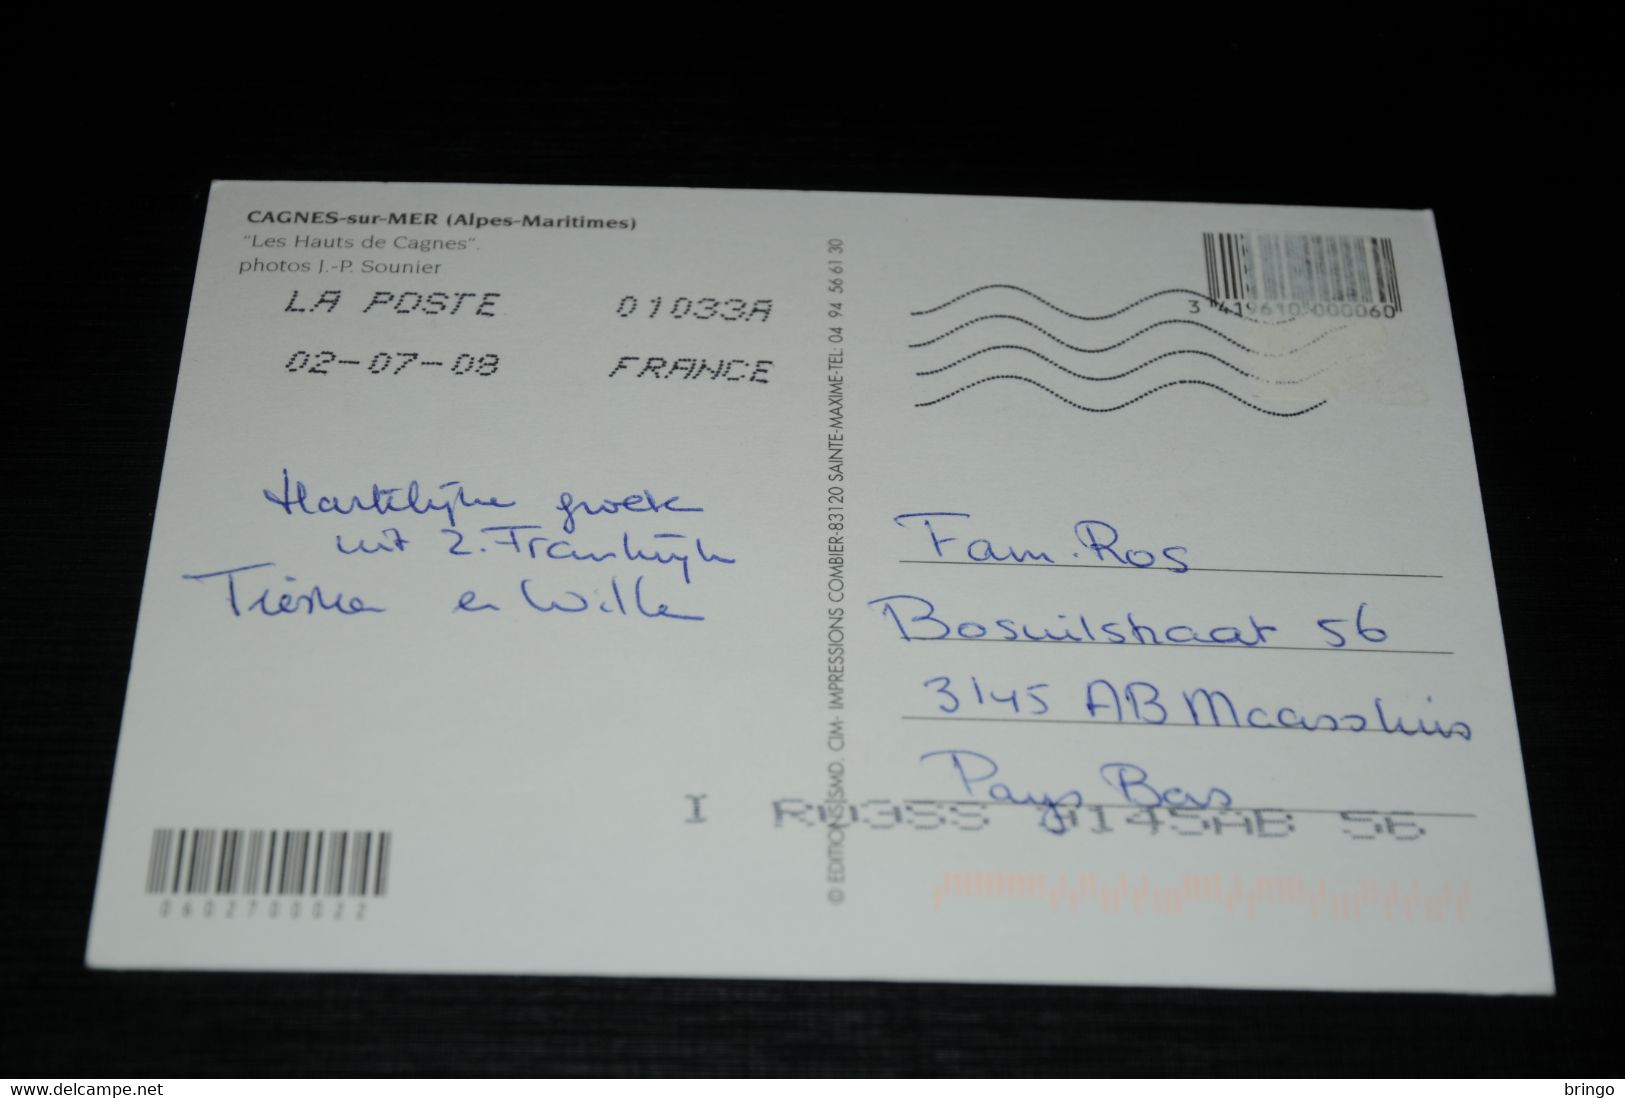 CAGNES-sur-MER (Alpes-Maritimes)
"Les Hauts de Cagnes".
photos J.-P. Sounier
LA POSTE 01033A
02-07-08 FRANCE
3 419610 000060
Hartelijke groete
uit Z. Frankrijk
en Willem
© EDITIONS SMD. CIM- IMPRESSIONS COMBIER-83120 SAINTE-MAXIME-TEL: 04 94 56 61 30
Fam. Ros
Bosuilstraat 56
3145 AB Maassluis
Pays Bas
3145AB 56
0602700022
www.delcampe.net
bringo